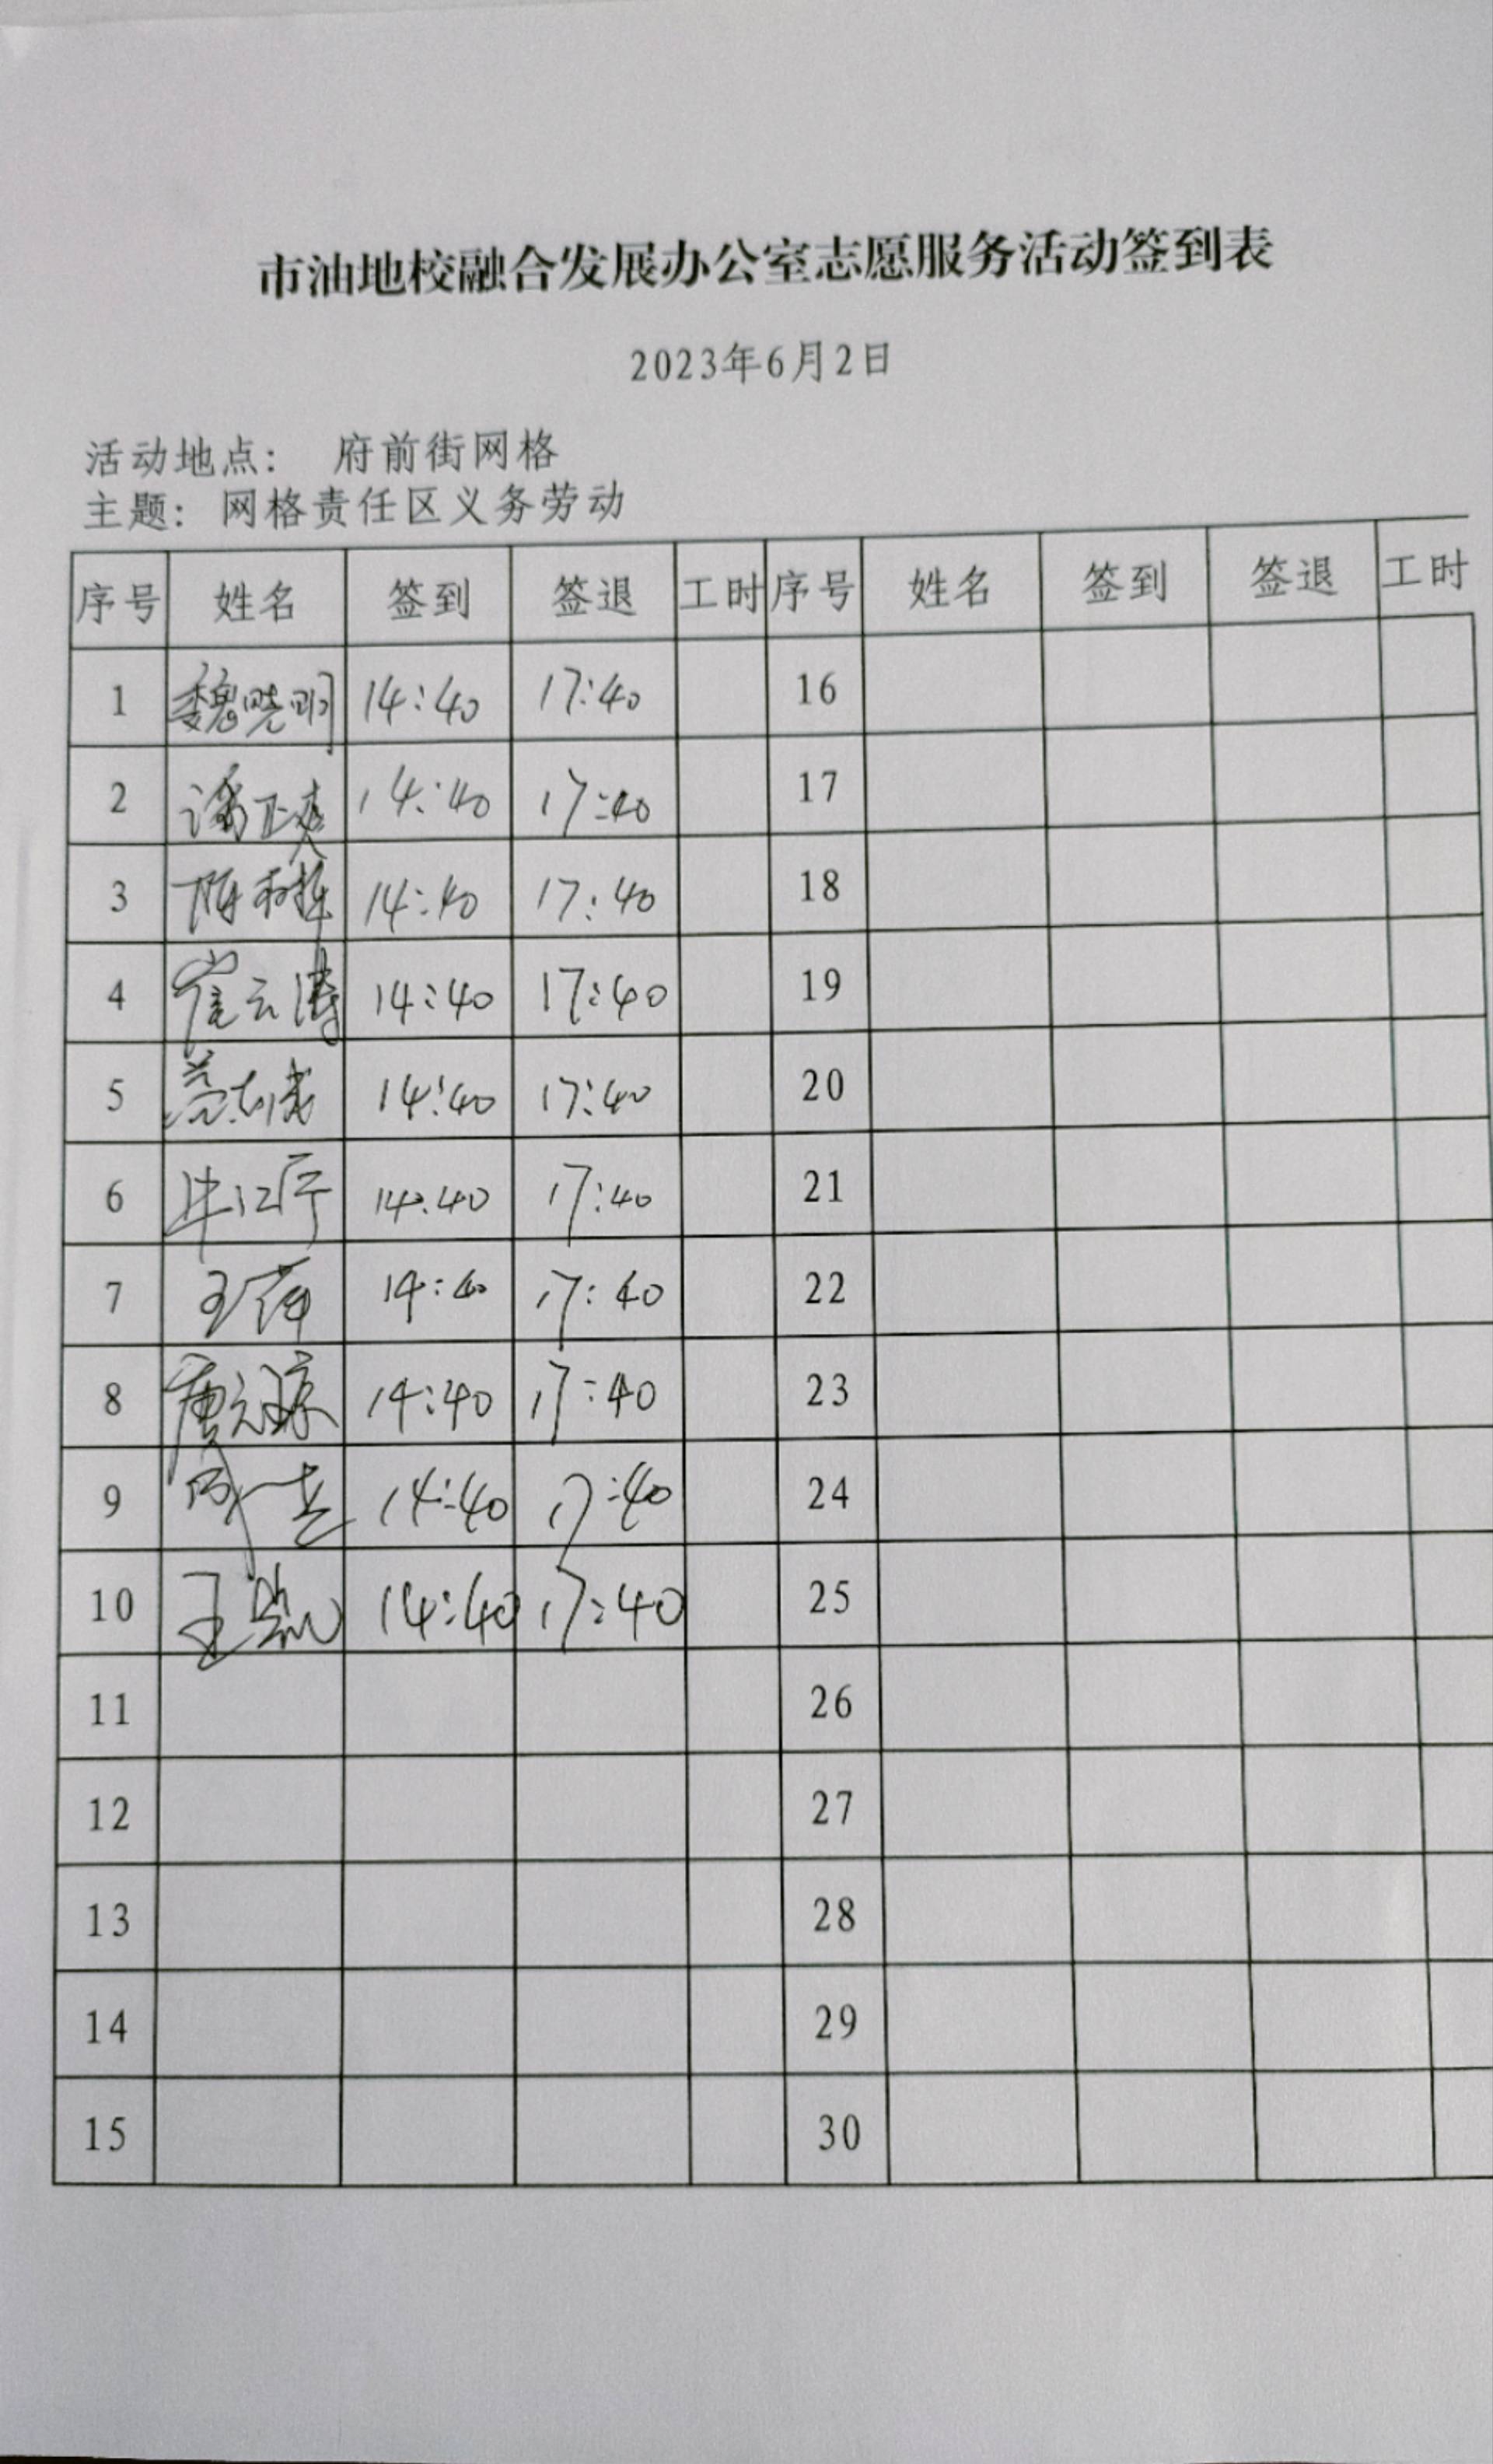 市油地校融合发展办公室志愿服务活动签到表
2023年6月2日
活动地点： 府前街网格
主题：网格责任区义务劳动
序号 姓名 签到 签退 工时 序号 姓名 签到 签退 工时
1 魏晓明 14:40 17:40 16
2 潘正爽 14:40 17:40 17
3 陈 14:40 17:40 18
4 崔云涛 14:40 17:40 19
5 14:40 17:40 20
6 牛江宇 14:40 17:40 21
7 王萍 14:40 17:40 22
8 唐 14:40 17:40 23
9 周 14:40 17:40 24
10 王凯 14:40 17:40 25
11 26
12 27
13 28
14 29
15 30